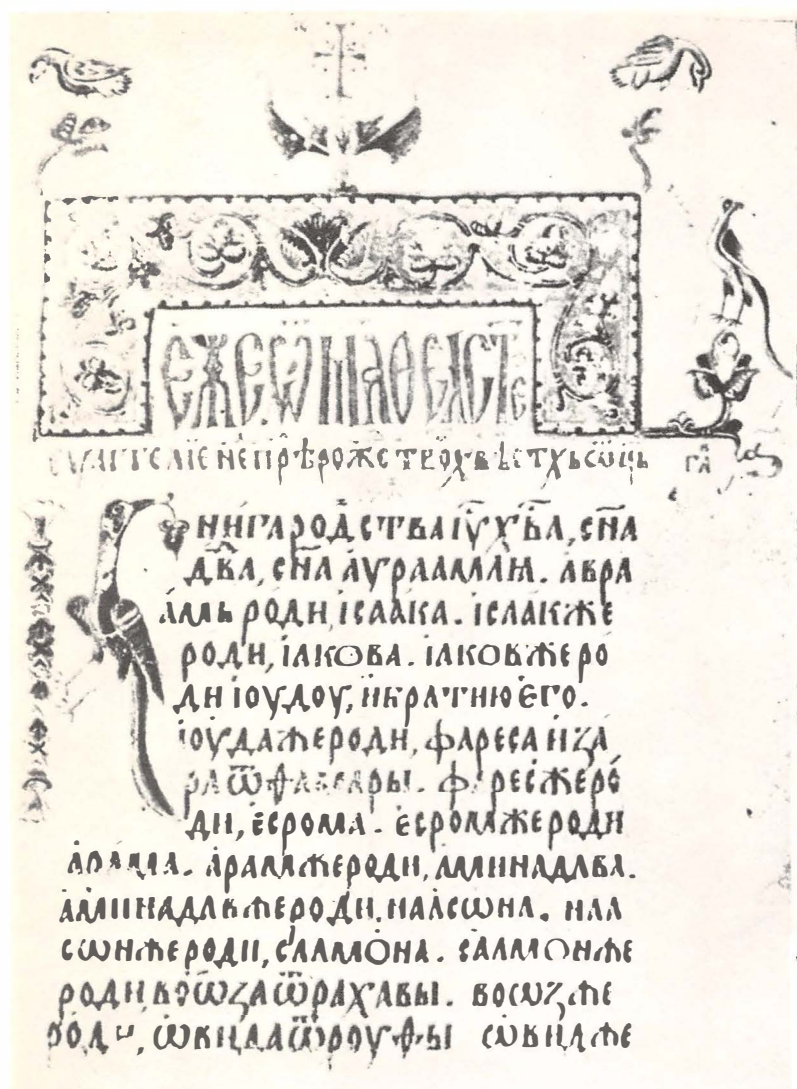 ЕЖЕ Ѿ МАѲЕА СТЕ
еѵаггеліе не прѣ рожествох҃вѣ ст҃хъ ѡц҃ь гл҃а
нигародства і҃у х҃ва, сн҃а
дв҃а, сн҃а аѵраамлѧ. авра
амь роди, ісаака. ісаакже
роди, іакова. іаковжеро
ди іоудоу, ибратиюего.
іоудажероди, фареса иꙁа
ра ѿѳамары. фаресжеро
ди, есрома. есромжероди
арама. арамжероди, аминадава.
аминадавжероди, наасѡна. наа
сѡнжероди, салмона. салмонже
роди воѡꙁа ѿрахавы. воѡꙁже
роди, ѡвида ѿроуфы ѡвидже